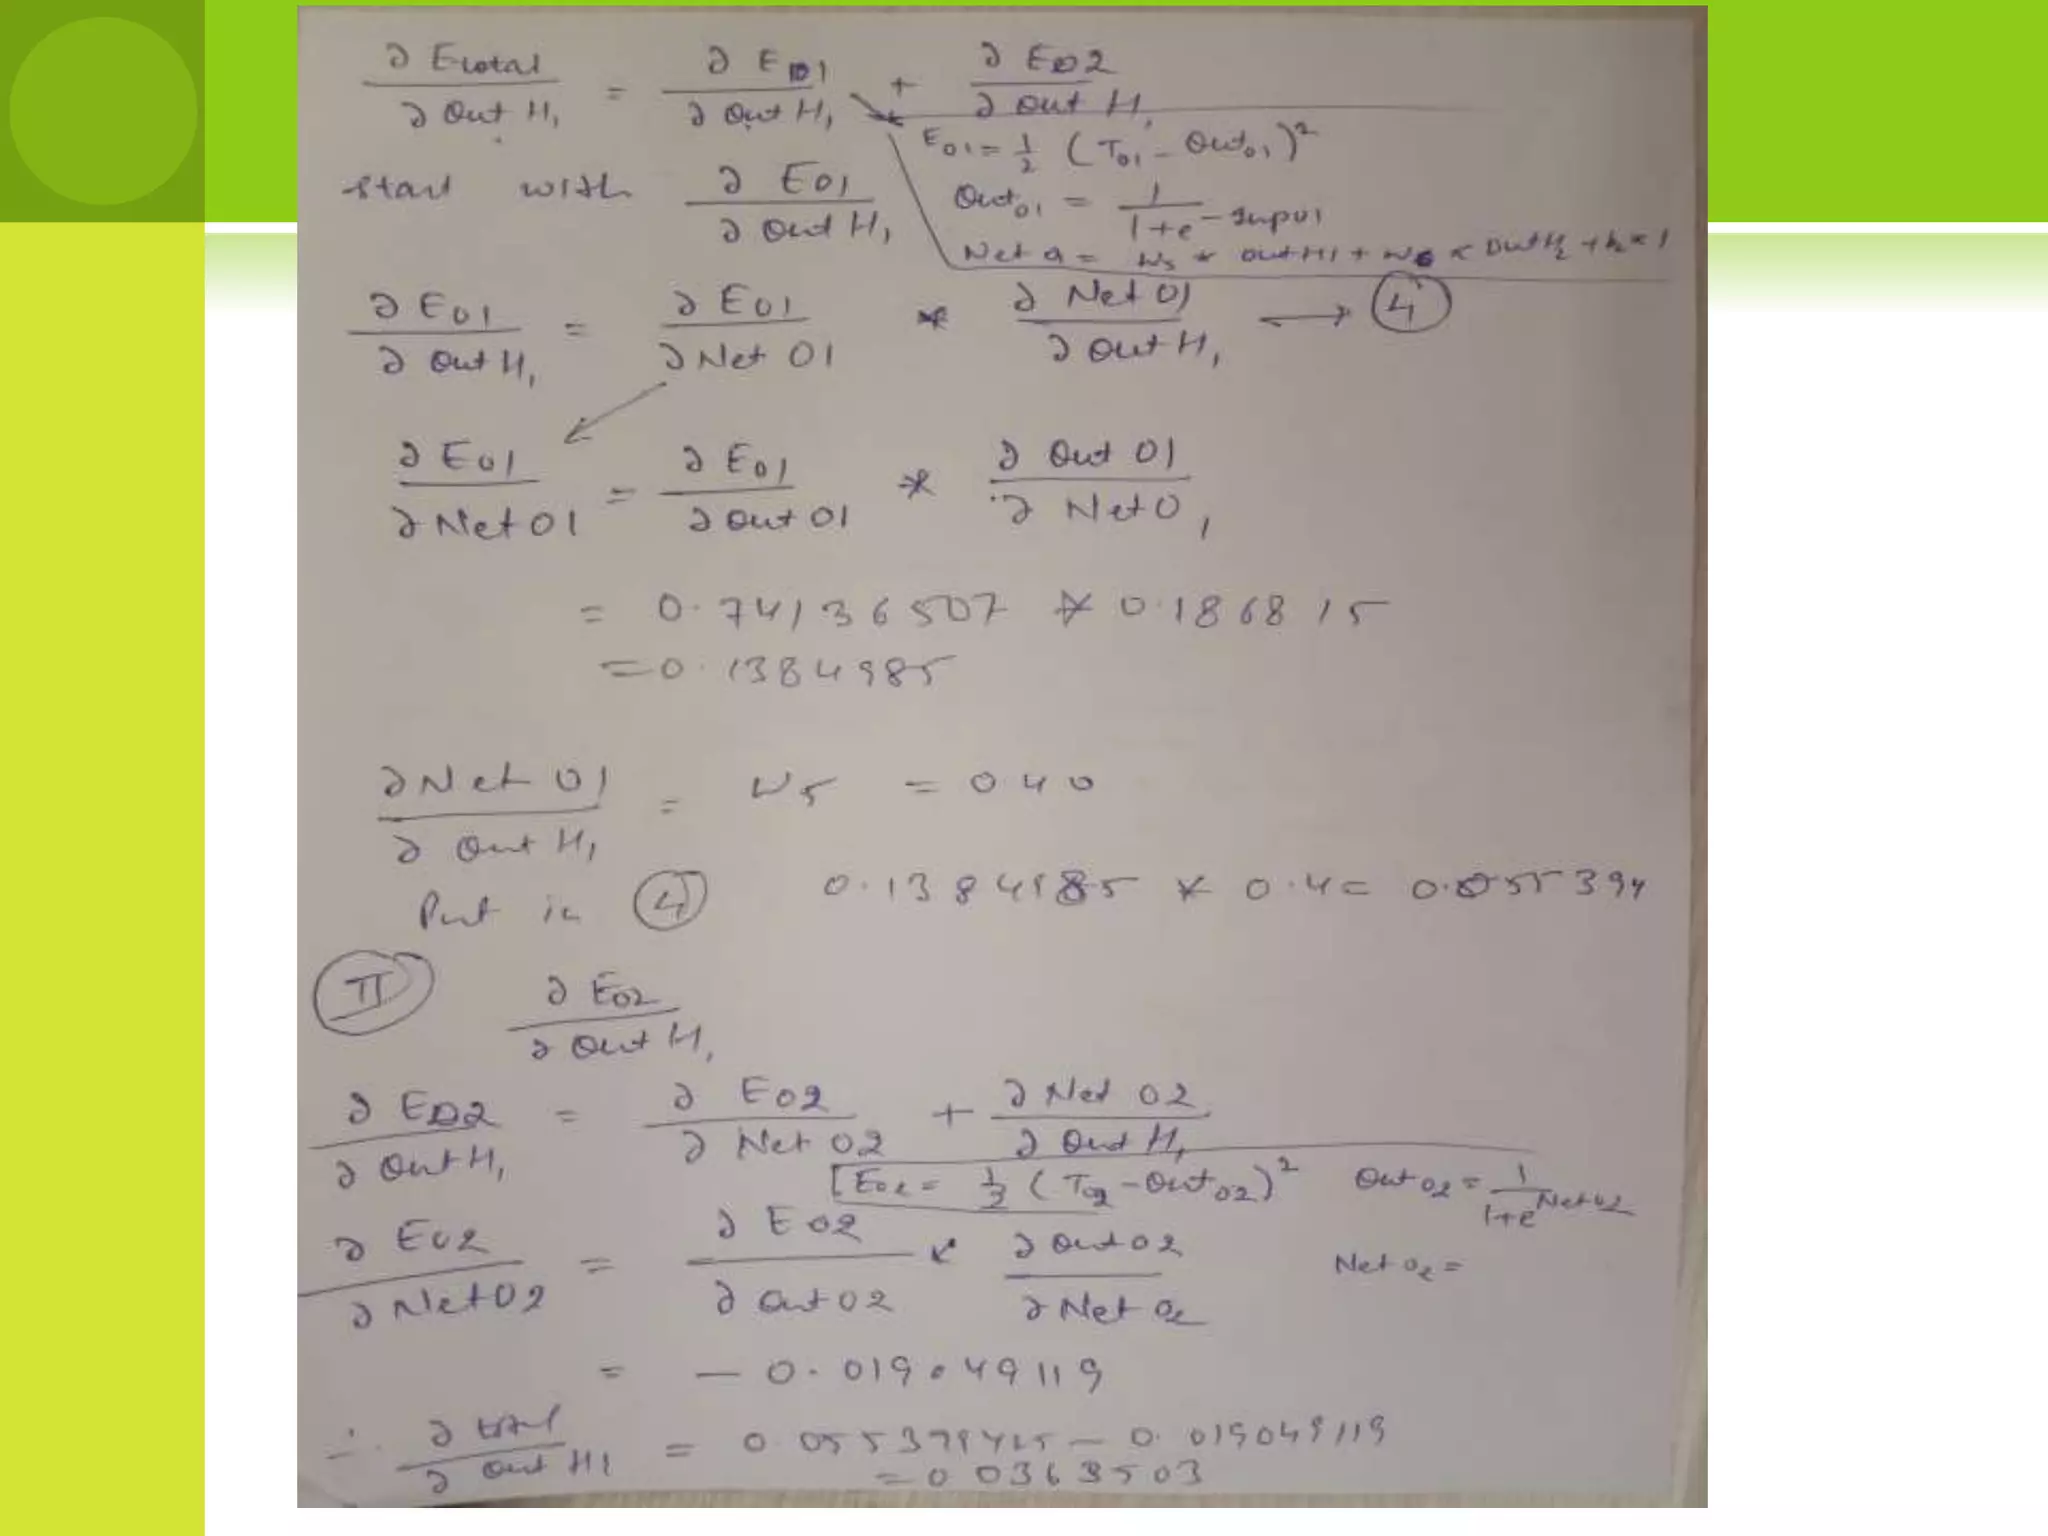 ∂ Etotal / ∂ Out H1 = ∂ E01 / ∂ Out H1 + ∂ E02 / ∂ Out H1
E01 = 1/2 (T01 - Out01)²
start with ∂ E01 / ∂ Out H1
Out01 = 1 / 1+e^-Inp01
Net 0 = W5 * OutH1 + W6 * OutH2 + b*1
∂ E01 / ∂ Out H1 = ∂ E01 / ∂ Net 01 * ∂ Net 01 / ∂ Out H1 → 4
∂ E01 / ∂ Net 01 = ∂ E01 / ∂ Out 01 * ∂ Out 01 / ∂ Net 01
= 0.74136507 * 0.186815
= 0.1384985
∂ Net 01 / ∂ Out H1 = W5 = 0.40
Put in 4 0.1384985 * 0.4 = 0.055394
II ∂ E02 / ∂ Out H1
∂ E02 / ∂ Out H1 = ∂ E02 / ∂ Net 02 + ∂ Net 02 / ∂ Out H1
E02 = 1/2 (T02 - Out02)² Out02 = 1 / 1+e^Net02
∂ E02 / ∂ Net 02 = ∂ E02 / ∂ Out 02 * ∂ Out 02 / ∂ Net 02 Net 02 =
= - 0.019049119
∴ ∂ total / ∂ Out H1 = 0.055399425 - 0.019049119
= 0.0363503